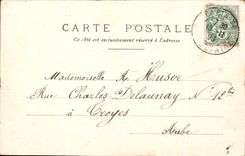 CARTE POSTALE
Ce côté est exclusivement réservé à l'adresse
Mademoiselle A. Husor
Rue Charles Delaunay N° 13 bis
à Troyes
Aube